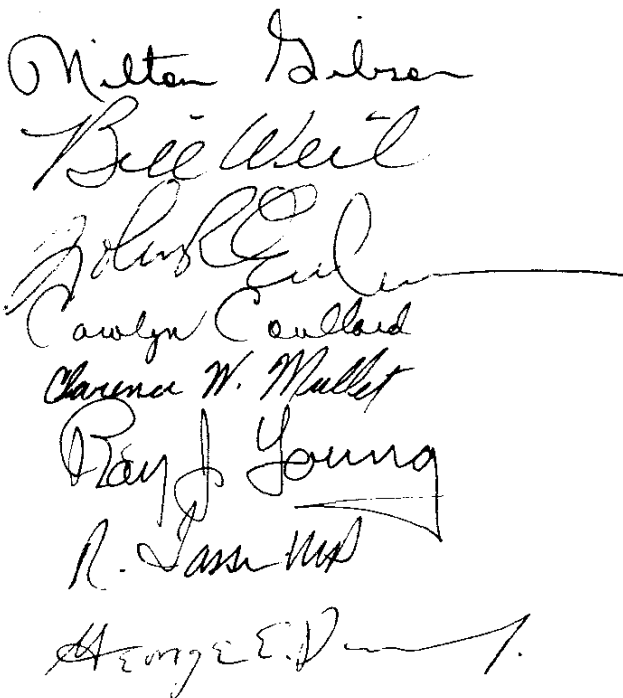 Milton Gibson
Bill Weil
John R
Carolyn Coullard
Clarence W. Mullet
Ray J Young
R. Tasse MD
George E.